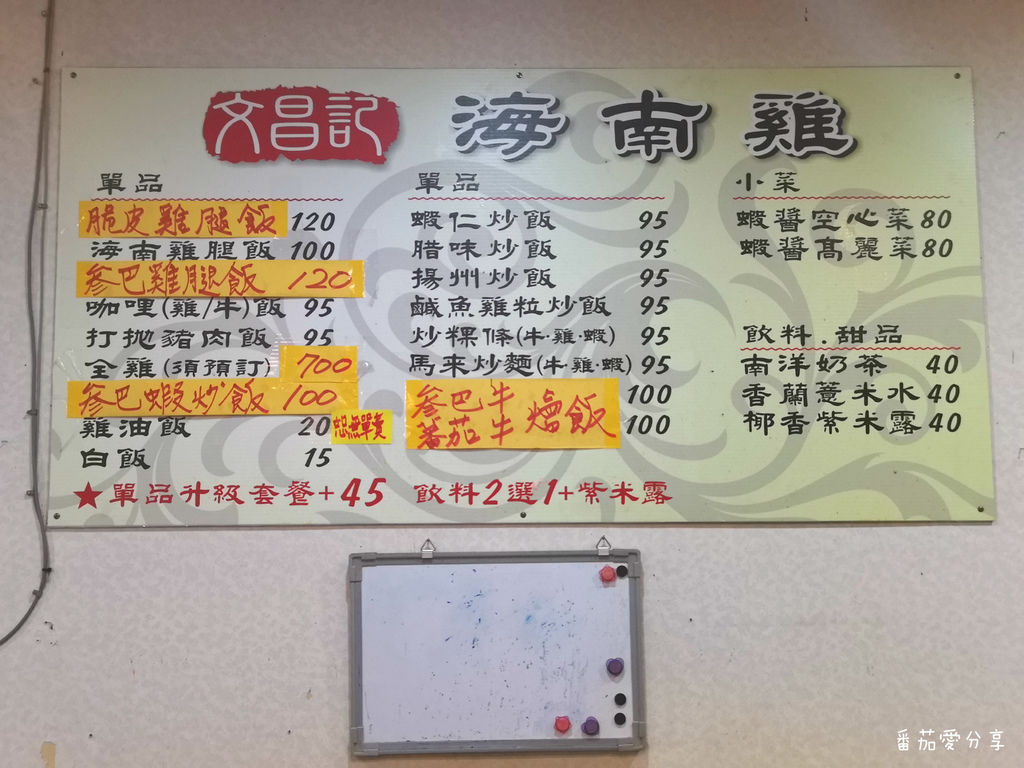 文昌記 海南雞
單品
脆皮雞腿飯 120
海南雞腿飯 100
參巴雞腿飯 120
咖哩(雞/牛)飯 95
打拋豬肉飯 95
全雞(須預訂) 700
參巴蝦炒飯 100
雞油飯 20 恕無單賣
白飯 15
單品
蝦仁炒飯 95
腊味炒飯 95
揚州炒飯 95
鹹魚雞粒炒飯 95
炒粿條(牛·雞·蝦) 95
馬来炒麵(牛·雞·蝦) 95
參巴牛燴飯 100
蕃茄牛燴飯 100
小菜
蝦醬空心菜 80
蝦醬高麗菜 80
飲料.甜品
南洋奶茶 40
香蘭薏米水 40
椰香紫米露 40
★單品升級套餐+45 飲料2選1+紫米露
番茄愛分享